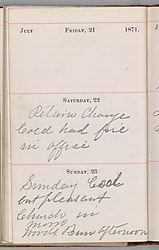 JULY FRIDAY, 21 1871.
SATURDAY, 22
Return Change
Cold had fire
in office
SUNDAY, 23
Sunday Cool
but pleasant
Church in
Morn
Afternoon